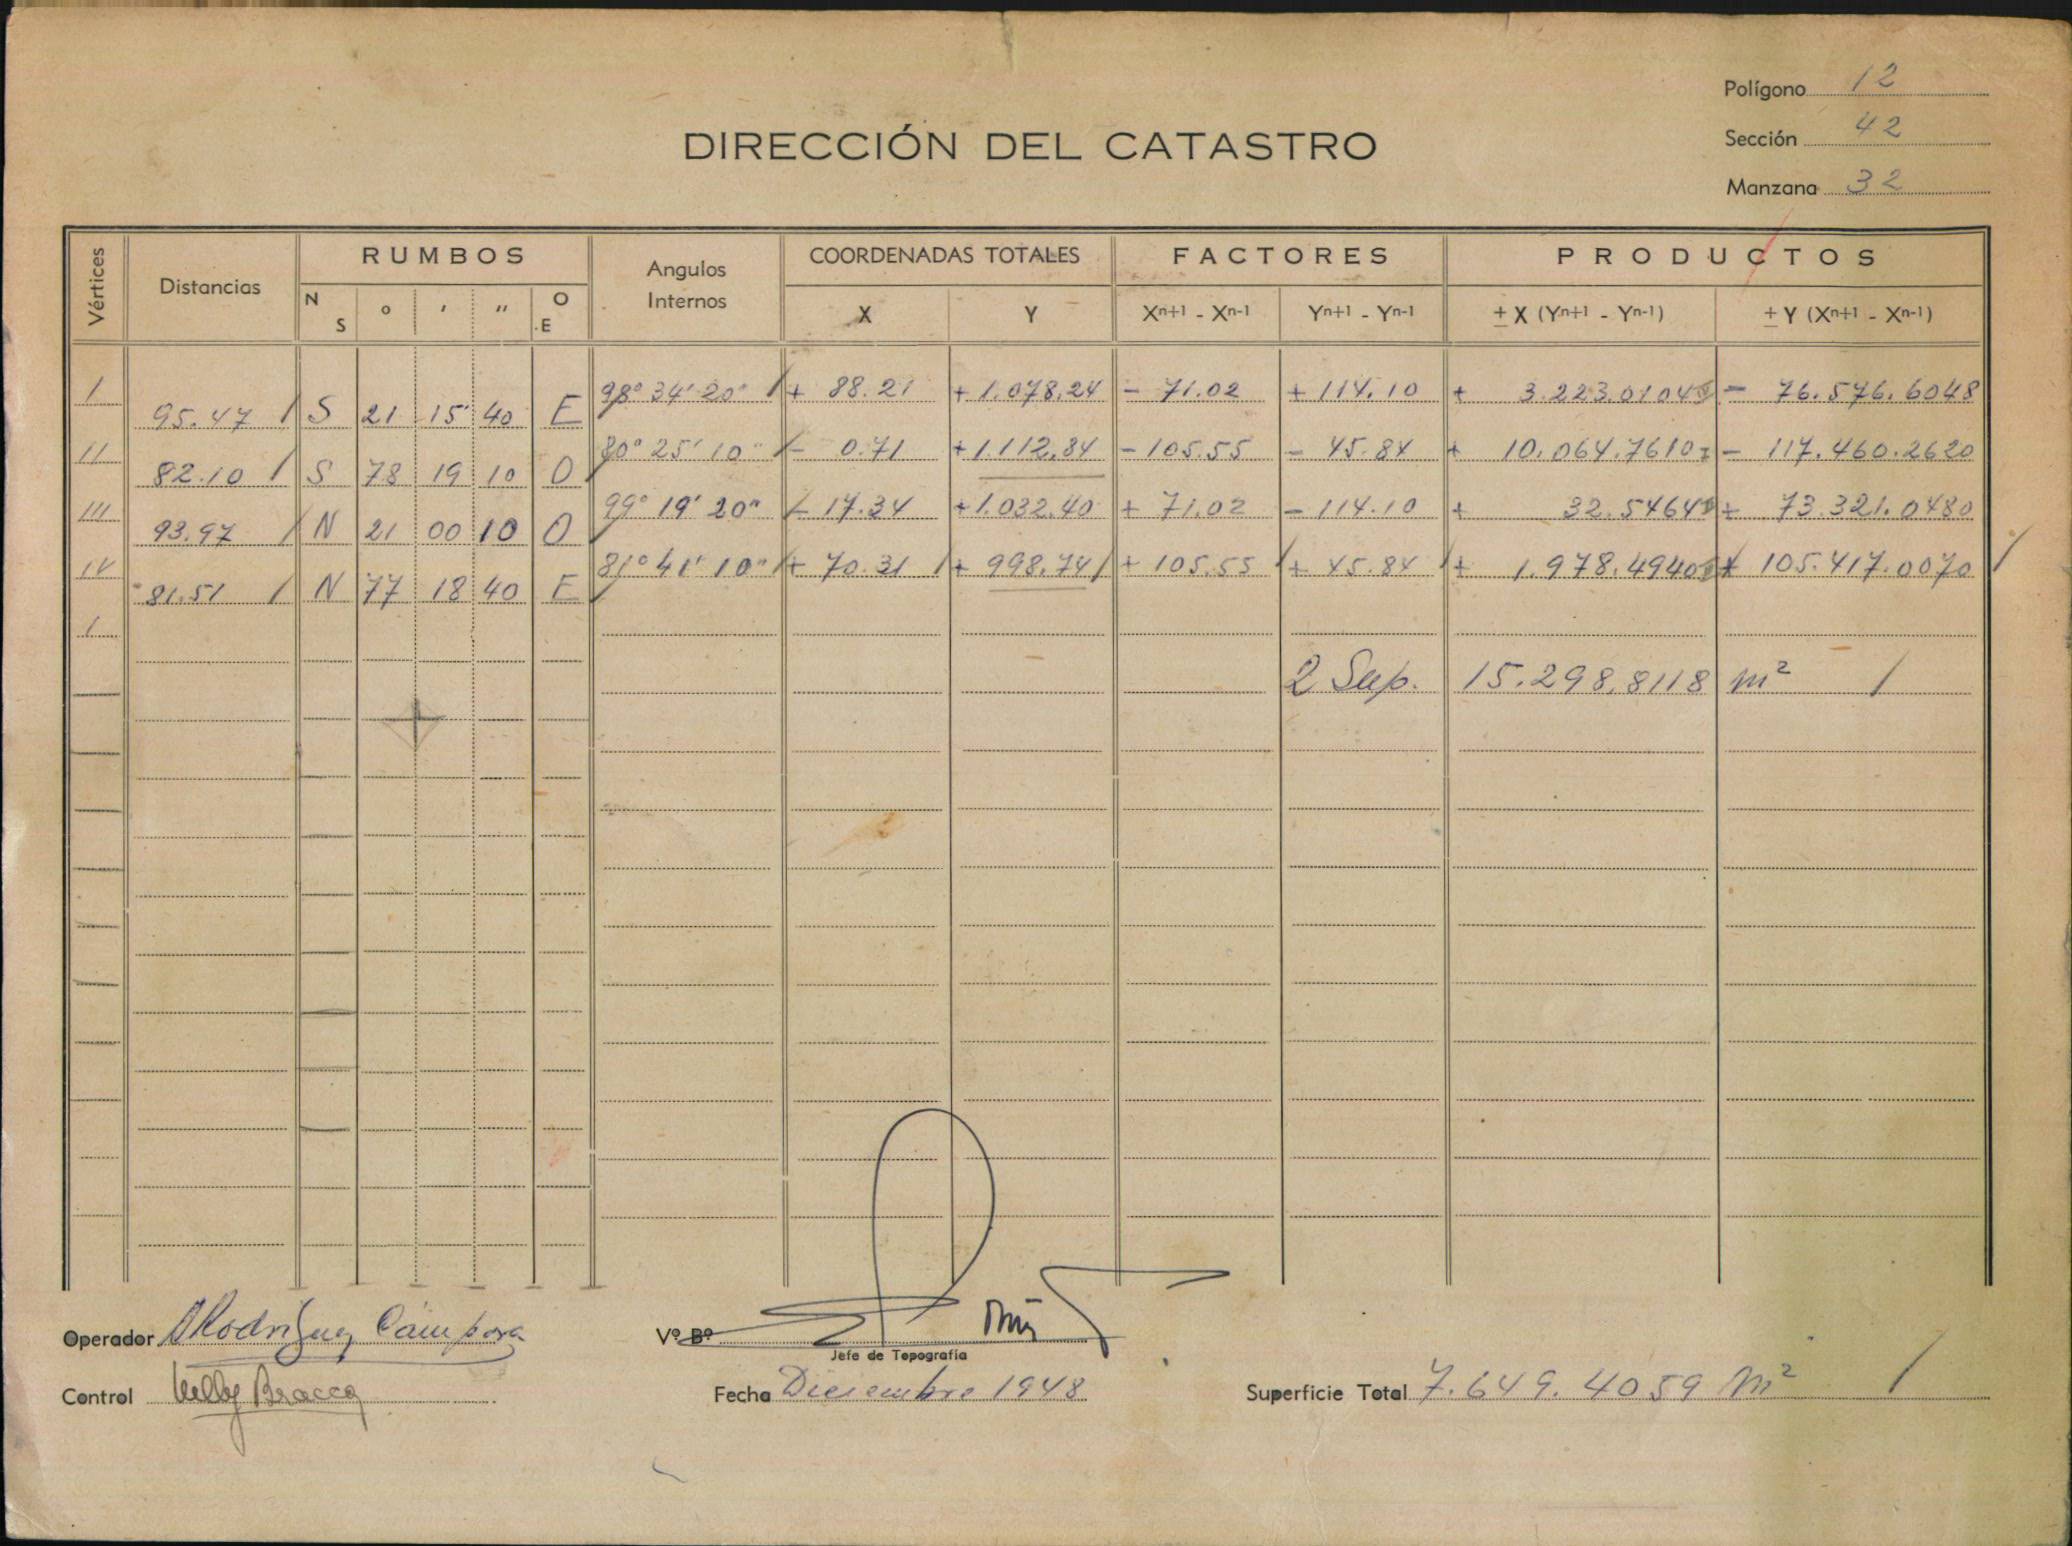 Polígono 12
DIRECCIÓN DEL CATASTRO
Sección 42
Manzana 32
Vértices Distancias RUMBOS Angulos Internos COORDENADAS TOTALES FACTORES PRODUCTOS
N S ° ' " O E X Y Xn+1 - Xn-1 Yn+1 - Yn-1 ± X (Yn+1 - Yn-1) ± Y (Xn+1 - Xn-1)
I 98° 34' 20" + 88.21 + 1.078,24 - 71.02 + 114.10 + 3.223.0104 - 76.576.6048
95.47 S 21 15' 40 E
II 80° 25' 10" - 0.71 + 1.112,84 - 105.55 - 45.84 + 10.064.7610 - 117.460.2620
82.10 S 78 19 10 O
III 99° 19' 20" - 17.34 + 1.032.40 + 71.02 - 114.10 + 32.5464 + 73.321.0480
93.97 N 21 00 10 O
IV 81° 41' 10" + 70.31 + 998.74 + 105.55 + 45.84 + 1.978.4940 + 105.417.0070
81.51 N 77 18 40 E
I
2 Sup. 15.298,8118 m²
Operador Rodríguez Cámpora
Vº Bº
Jefe de Topografía
Control Nelly Bracco
Fecha Diciembre 1948
Superficie Total 7.649.4059 m²